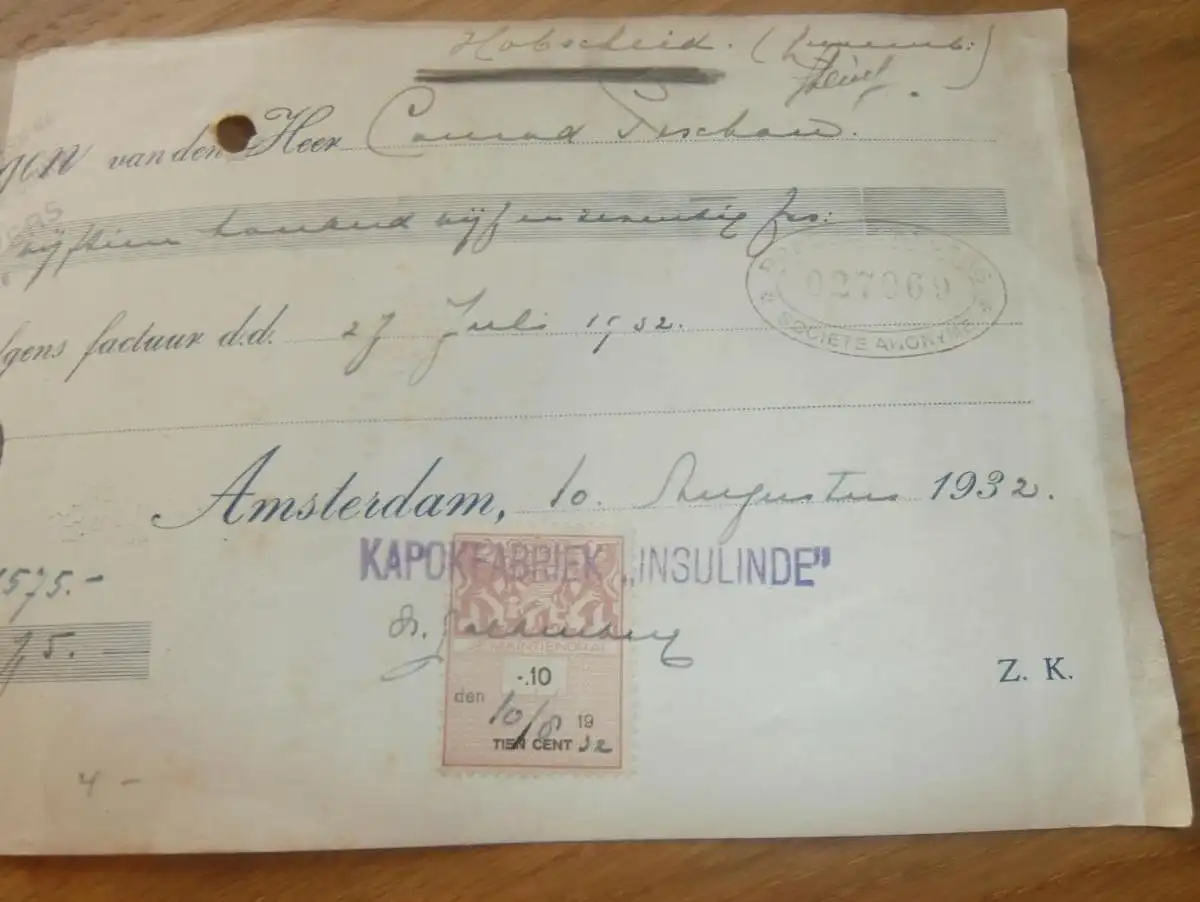 Hobscheid. (Luxemb:)
van den Heer Conrad
vijftien honderd vijf en zeventig frs:
027069
SOCIETE ANONYME
factuur d.d. 27 Juli 1932.
Amsterdam, 10. Augustus 1932.
KAPOKFABRIEK „INSULINDE”
1575.-
75.
JE MAINTIENDRAI
-.10
den 10/8 19
TIEN CENT 32
Z. K.
4 -